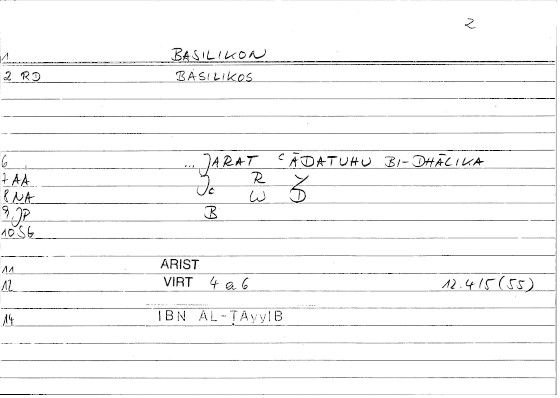 2
1 BASILIKON
2 RD BASILIKOS
6 ... JARAT ʿĀDATUHU BI-DHĀLIKA
7 AA Jc R Y
8 NA W D
9 JP B
10 SG
11 ARIST
12 VIRT 4 a 6 12.4/5 (55)
14 IBN AL-ṬAyyIB